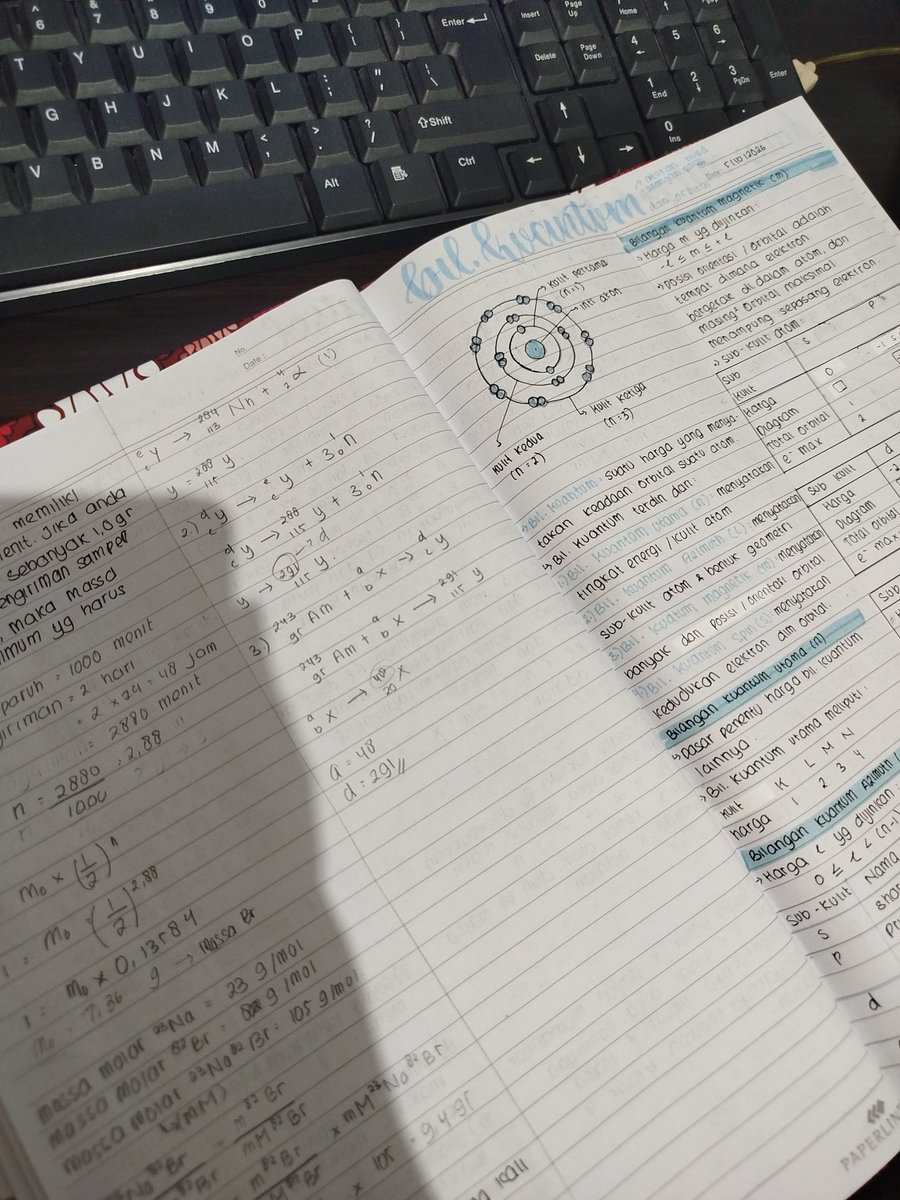 ^
6
&
7
*
8
9
0
Enter
Insert
Page
Up
Home
T
Y
U
I
O
P
{
[
}
]
Delete
Page
Down
4
5
6
G
H
J
K
L
:
;
"
'
|
\
1
End
2
3
PgDn
Enter
V
B
N
M
<
,
>
.
?
/
Shift
0
Ins
Alt
Ctrl
memiliki
Jika anda
sebanyak 1,0 gr
engiriman sampel
, maka massa
yg harus
paruh = 1000 menit
giriman = 2 hari
= 2 x 24 = 48 jam
= 2880 menit
n = 2880 = 2,88
1000
m₀ x (1/2)ⁿ
1 = m₀ (1/2)^2,88
1 = m₀ x 0,13584
m₀ = 7,36 g → Massa Br
massa molar ²³Na = 23 g/mol
massa molar ⁸²Br = 82 g/mol
massa molar ²³Na⁸²Br = 105 g/mol
(mM)
m ⁸²Br
mM ⁸²Br
x mM ²³Na⁸²Br
x 105 = 9,4 gr
kali
No.
Date:
e c y → 284 113 Nh + 4 2 α (1)
y = 288 115 y
2.) d c y → e c y + 3 1 0 n
d c y → 288 115 y + 3 1 0 n
y → 291 115 y → d
3) 243 95 Am + a b x → d c y
243 95 Am + a b x → 291 115 y
a b x → 48 20 x
a = 48
d = 291 //
bil. kuantum
Date: 5/10/2026
kulit pertama
(n=1)
inti atom
kulit ketiga
(n=3)
kulit kedua
(n=2)
↳ Bil. Kuantum : suatu harga yang menya-
takan keadaan orbital suatu atom.
↳ Bil. kuantum terdiri dari:
1) Bil. kuantum Utama (n) : menyatakan
tingkat energi / kulit atom
2) Bil. kuantum Azimuth (l) : menyatakan
sub-kulit atom & bentuk geometri
3) Bil. kuatum magnetik (m) menyatakan
banyak dan posisi / orientasi orbital
4) Bil. kuantan Spin (s) menyatakan
kedudukan elektron dlm orbital.
Bilangan kuantum utama (n)
↳ Dasar penentu harga bil kuantum
lainnya.
> Bil. kuantum utama meliputi :
kulit K L M N
harga 1 2 3 4
Bilangan kuantum Azimuth
> Harga l yg diijinkan :
0 ≤ l ≤ (n-1)
Sub-kulit Nama
s
p
d
Bilangan kuantum magnetik (m)
> Harga m yg diijinkan :
-l ≤ m ≤ +l
> posisi orientasi / orbital adalah
tempat dimana elektron
bergerak di dalam atom, dan
masing² orbital maksimal
menampung sepasang elektron.
> Sub-kulit atom :
Sub s p
kulit
Harga 0
Diagram
Total orbital 1
e⁻ max 2
Sub kulit d
Harga
Diagram
Total orbital
e⁻ max
Sub
PAPERLINE